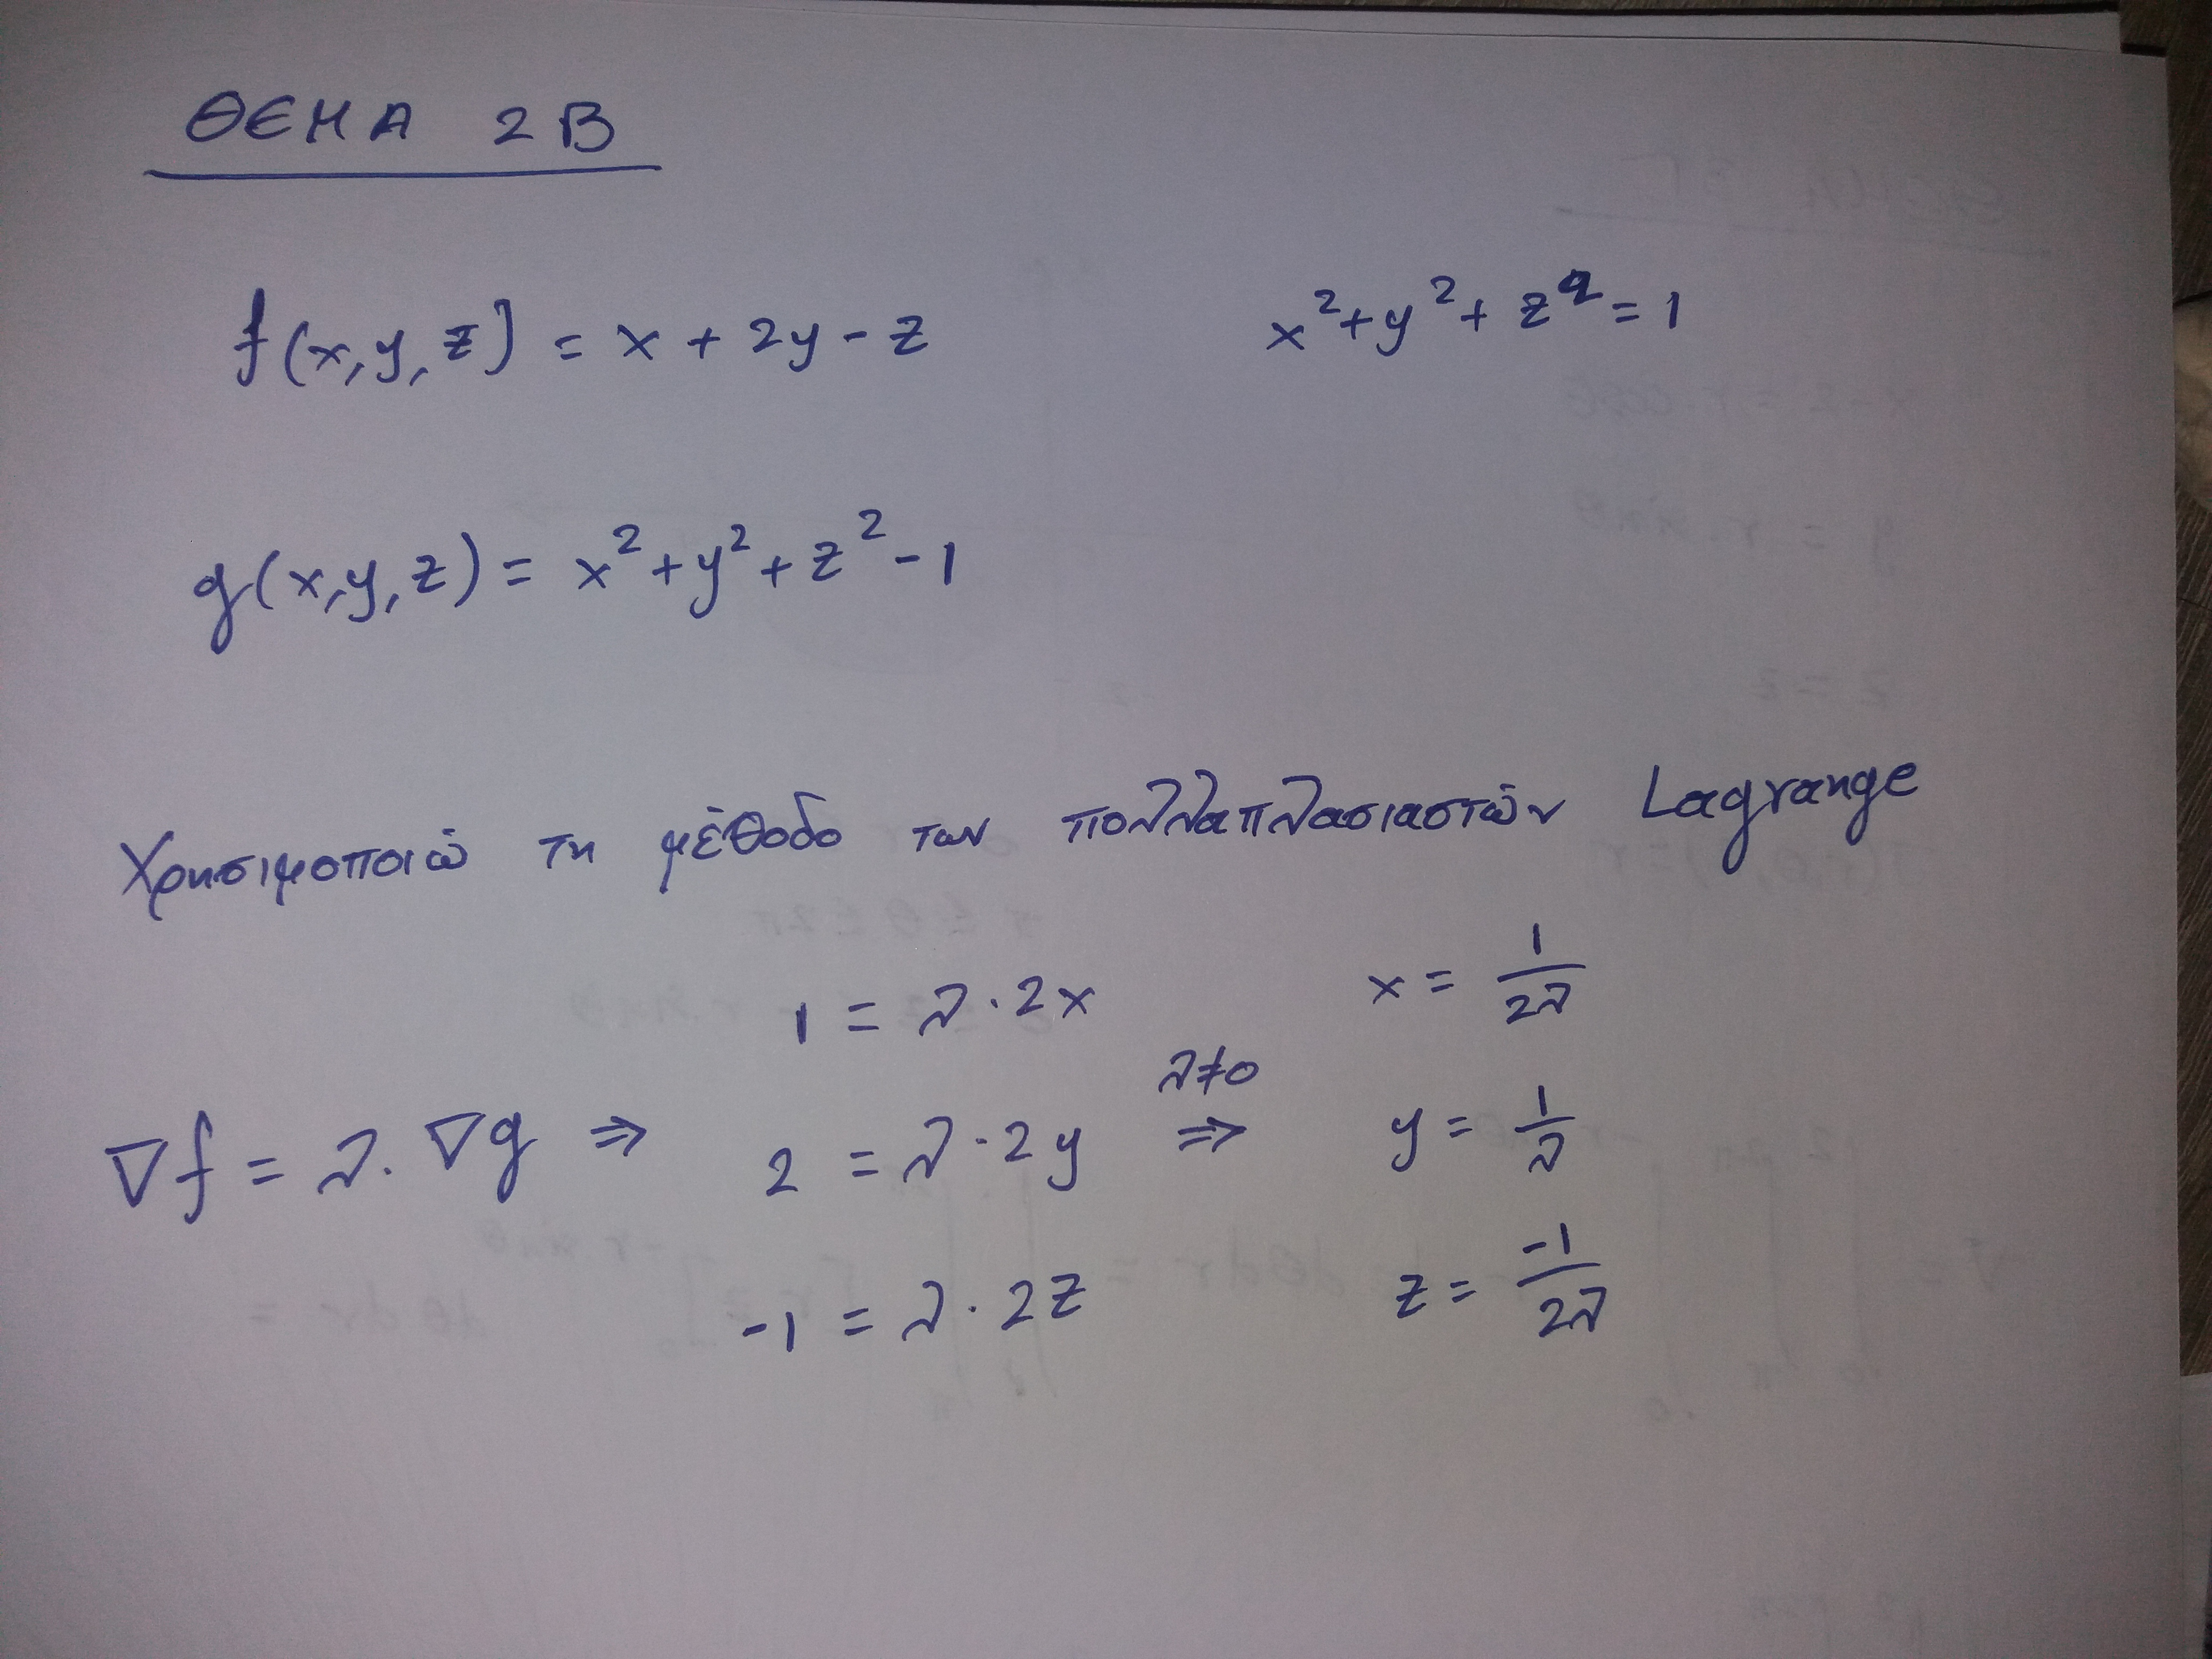 ΘΕΜΑ 2Β
f(x,y,z) = x + 2y - z x²+y²+z²=1
g(x,y,z) = x²+y²+z²-1
Χρησιμοποιώ τη μέθοδο των πολλαπλασιαστών Lagrange
1 = λ·2x x = 1/2λ
∇f = λ·∇g ⇒ 2 = λ·2y λ≠0 ⇒ y = 1/λ
-1 = λ·2z z = -1/2λ